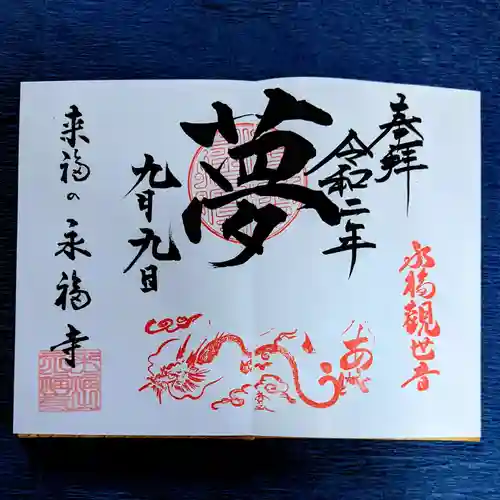 奉拝
永福観世音
令和二年
夢
九月九日
来福の永福寺